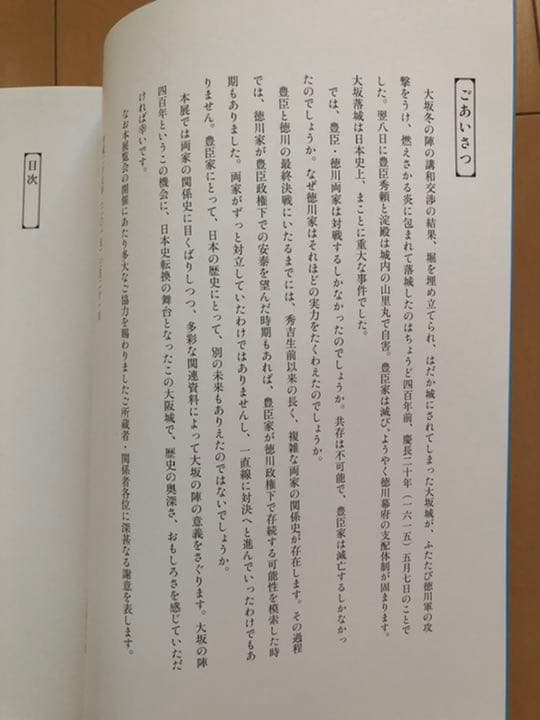 ごあいさつ
大坂冬の陣の講和交渉の結果、堀を埋め立てられ、はだか城にされてしまった大坂城が、ふたたび徳川軍の攻
撃をうけ、燃えさかる炎に包まれて落城したのはちょうど四百年前、慶長二十年（一六一五）五月七日のことで
した。翌八日に豊臣秀頼と淀殿は城内の山里丸で自害。豊臣家は滅び、ようやく徳川幕府の支配体制が固まります。
大坂落城は日本史上、まことに重大な事件でした。
では、豊臣・徳川両家は対戦するしかなかったのでしょうか。共存は不可能で、豊臣家は滅亡するしかなかっ
たのでしょうか。なぜ徳川家はそれほどの実力をたくわえたのでしょうか。
豊臣と徳川の最終決戦にいたるまでには、秀吉生前以来の長く、複雑な両家の関係史が存在します。その過程
では、徳川家が豊臣政権下での安泰を望んだ時期もあれば、豊臣家が徳川政権下で存続する可能性を模索した時
期もありました。両家がずっと対立していたわけではありませんし、一直線に対決へと進んでいったわけでもあ
りません。豊臣家にとって、日本の歴史にとって、別の未来もありえたのではないでしょうか。
本展では両家の関係史に目くばりしつつ、多彩な関連資料によって大坂の陣の意義をさぐります。大坂の陣
四百年というこの機会に、日本史転換の舞台となったこの大阪城で、歴史の奥深さ、おもしろさを感じていただ
ければ幸いです。
なお本展覧会の開催にあたり多大なご協力を賜わりましたご所蔵者・関係者各位に深甚なる謝意を表します。
目次